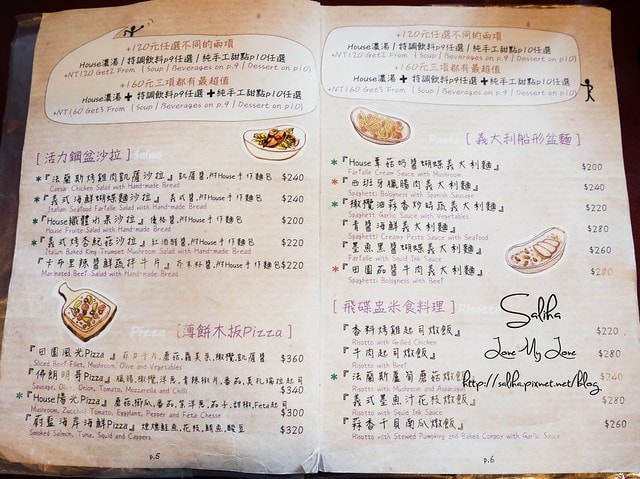 +120元任選不同的兩項
House濃湯 / 特調飲料p9任選 / 純手工甜點p10任選
+NT120 Get2 From ( Soup / Beverages on p.9 / Dessert on p10)
+160元三項都有最超值
House濃湯 + 特調飲料p9任選 + 純手工甜點p10任選
+NT160 Get3 From ( Soup / Beverages on p.9 / Dessert on p10)
[ 活力鋼盆沙拉 ] Salad
*『法蘭斯烤雞肉凱薩沙拉』凱薩醬,附House手作麵包 $240
Caesar Chicken Salad with Hand-made Bread
*『義式海鮮蝴蝶麵沙拉』義式醬,附House手作麵包 $240
Italian Seafood Farfalle Salad with Hand-made Bread
*『House纖體水果沙拉』優格醬,附House手作麵包 $200
House Fruite Salad with Hand-made Bread
*『義式烤杏鮑菇沙拉』紅酒醋醬,附House手作麵包 $220
Italian Baked King Trumpet Mushroom Salad with Hand-made Bread
『卡布里辣醬鮮蔬拌牛片』芥末籽醬,附House手作麵包 $220
Marinated Beef Salad with Hand-made Bread
Pizza [薄餅木板Pizza ]
『田園風光Pizza 』菲力牛片,蘑菇,蘿美朵,橄欖,凱薩醬 $360
Sliced Beef-Filet, Mushroom, Olive and Vegetables
『佛朗明哥Pizza 』臘腸,橄欖,洋蔥,青辣椒片,番茄,莫札瑞拉起司 $340
Sausage, Olive, Onion, Tomato, Mozzarella and Chilli
*『House陽光Pizza 』蘑菇,節瓜,番茄,紫洋蔥,茄子,甜椒,Feta起司 $340
Mushroom, Zucchini, Tomato, Eggplant, Pepper and Feta Cheese $300
『蔚藍海岸海鮮Pizza 』煙燻鮭魚,花枝,鮪魚,酸豆 $320
Smoked Salmon, Tuna, Squid and Cappers
p.5
+120元任選不同的兩項
House濃湯 / 特調飲料p9任選 / 純手工甜點p10任選
+NT120 Get2 From ( Soup / Beverages on p.9 / Dessert on p10)
+160元三項都有最超值
House濃湯 + 特調飲料p9任選 + 純手工甜點p10任選
+NT160 Get3 From ( Soup / Beverages on p.9 / Dessert on p10)
[ 義大利船形盆麵 ]
*『House蕈菇奶醬蝴蝶義大利麵』 $200
Farfalle Cream Sauce with Mushroom
*『西班牙臘腸肉義大利麵』 $240
Spaghetti Bolognese with Spanish Sausage
*『橄欖油蒜香炒時蔬義大利麵』 $220
Spaghetti Garlic Sauce with Vegetables
『青醬海鮮義大利麵』 $280
Spaghetti Creamy Pesto Sauce with Seafood
『墨魚黑醬蝴蝶義大利麵』 $260
Farfalle with Squid Ink Sauce
*『田園茄醬牛肉義大利麵』 $280
Spaghetti Bolognese with Beef
[ 飛碟盅米食料理 ]
『香料烤雞起司燉飯』 $220
Risotto with Grilled Chicken
『牛肉起司燉飯』 $280
Risotto with Beef
*『法蘭斯蘆筍蘑菇燉飯』 $240
Risotto with Mushroom and Asparagus
『義式墨魚汁花枝燉飯』 $280
Risotto with Squid Ink Sauce
『蒜香干貝南瓜燉飯』 $260
Risotto with Stewed Pumpking and Baked Conpoy with Garlic Sauce
p.6
Saliha
Love My Love
http://saliha.pixnet.net/blog